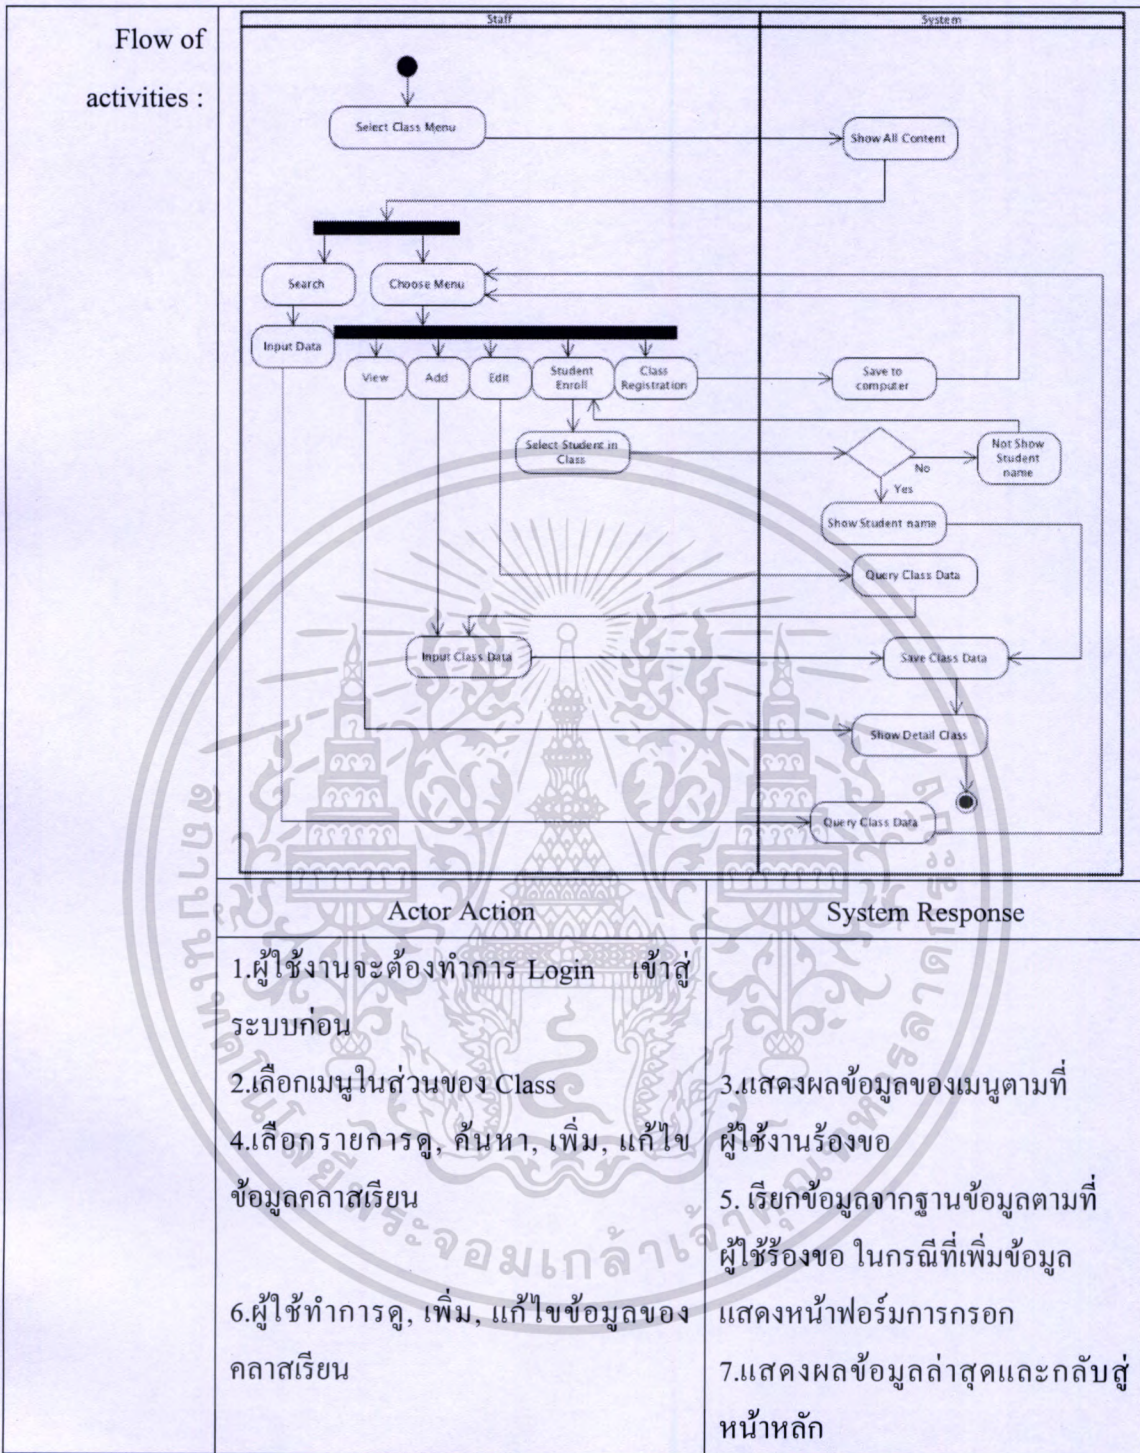 Flow of
activities :
Staff
System
Select Class Menu
Show All Content
Search
Choose Menu
Input Data
View
Add
Edit
Student
Enroll
Class
Registration
Save to
computer
Select Student in
Class
No
Not Show
Student
name
Yes
Show Student name
Query Class Data
Input Class Data
Save Class Data
Show Detail Class
Query Class Data
Actor Action
System Response
1.ผู้ใช้งานจะต้องทำการ Login เข้าสู่
ระบบก่อน
2.เลือกเมนูในส่วนของ Class
3.แสดงผลข้อมูลของเมนูตามที่
ผู้ใช้งานร้องขอ
4.เลือกรายการดู, ค้นหา, เพิ่ม, แก้ไข
ข้อมูลคลาสเรียน
5. เรียกข้อมูลจากฐานข้อมูลตามที่
ผู้ใช้ร้องขอ ในกรณีที่เพิ่มข้อมูล
แสดงหน้าฟอร์มการกรอก
6.ผู้ใช้ทำการดู, เพิ่ม, แก้ไขข้อมูลของ
คลาสเรียน
7.แสดงผลข้อมูลล่าสุดและกลับสู่
หน้าหลัก
สถาบันเทคโนโลยีพระจอมเกล้าเจ้าคุณทหารลาดกระบัง